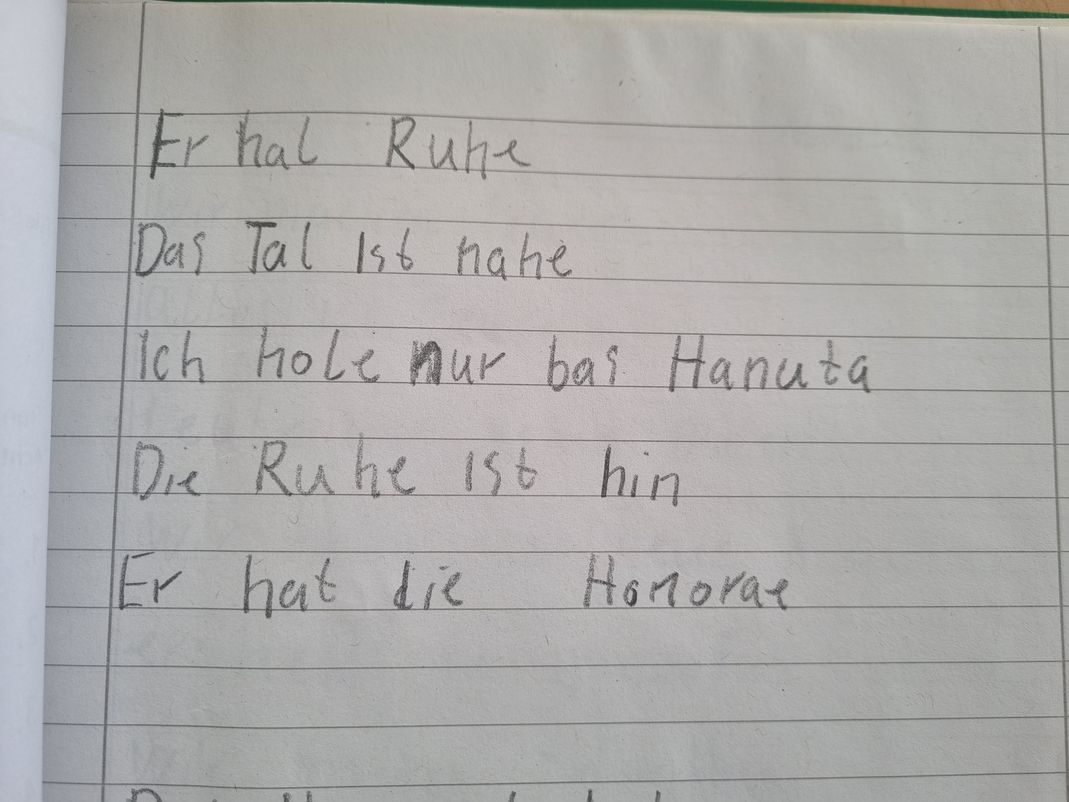 Er hal Ruhe
Das Tal Ist nahe
Ich hole nur bas Hanuta
Die Ruhe ist hin
Er hat die Honorae